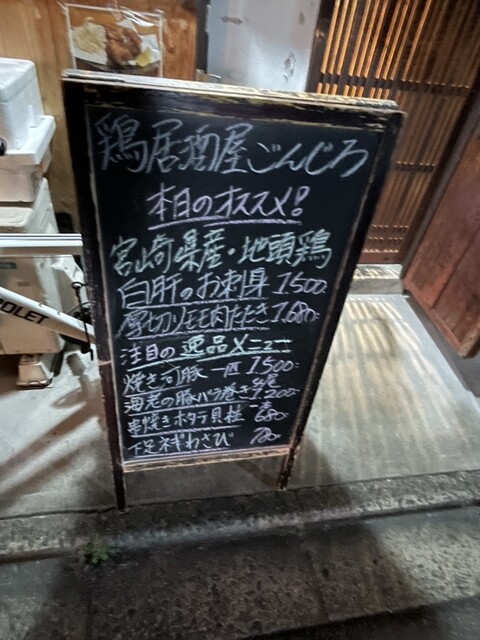 鶏居酒屋ごんじろ
本日のオススメ!
宮崎県産・地頭鶏
白肝のお刺身 1500
厚切りモモ肉たたき 1,680-
注目の逸品メニュー
焼き河豚 一匹 1500-
海老の豚バラ巻き 1,200-
串焼きホタテ貝柱 680-
下足ネギわさび 780-
ROLET